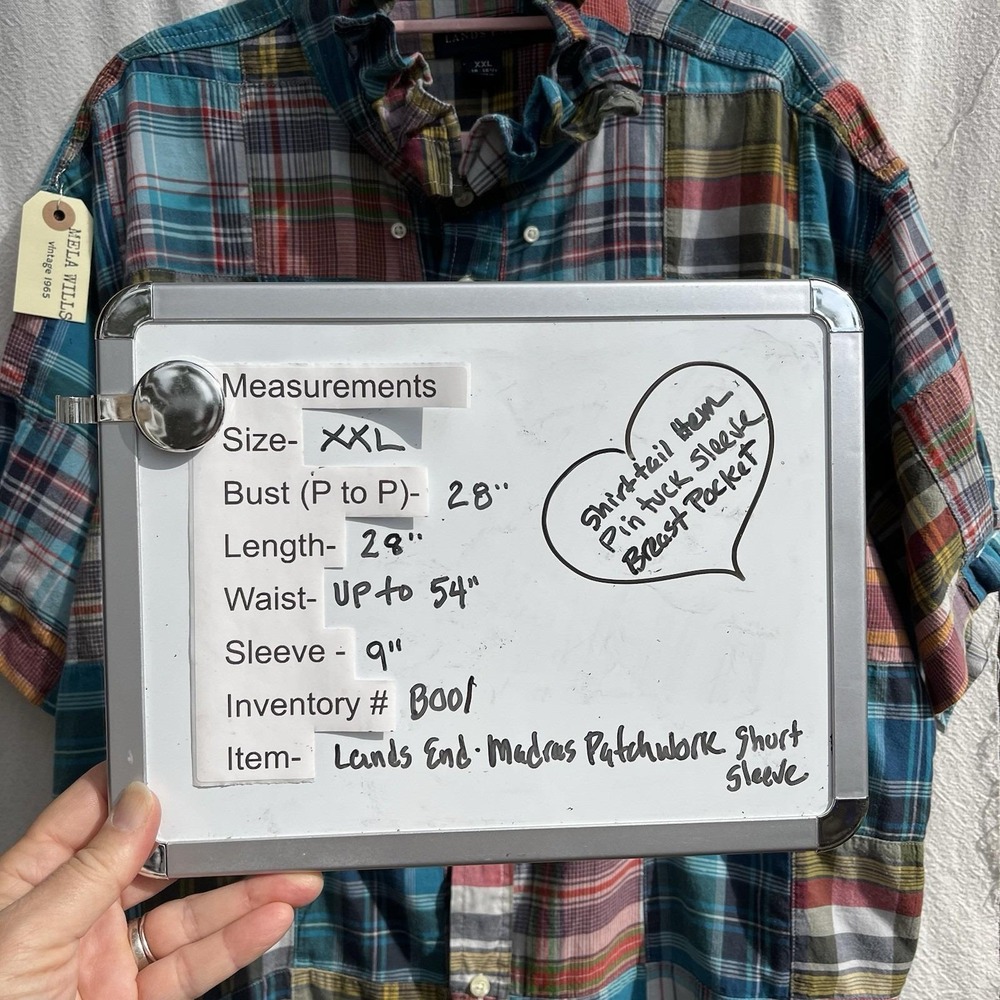 LANDS' END
XXL
MELA WILLS
vintage 1965
Measurements
Size- XXL
Bust (P to P)- 28"
Length- 28"
Waist- UP to 54"
Sleeve - 9"
Inventory # B001
Item- Lands End · Madras Patchwork Short
Sleeve
Shirt-tail Hem
Pin tuck Sleeve
Breast Pocket